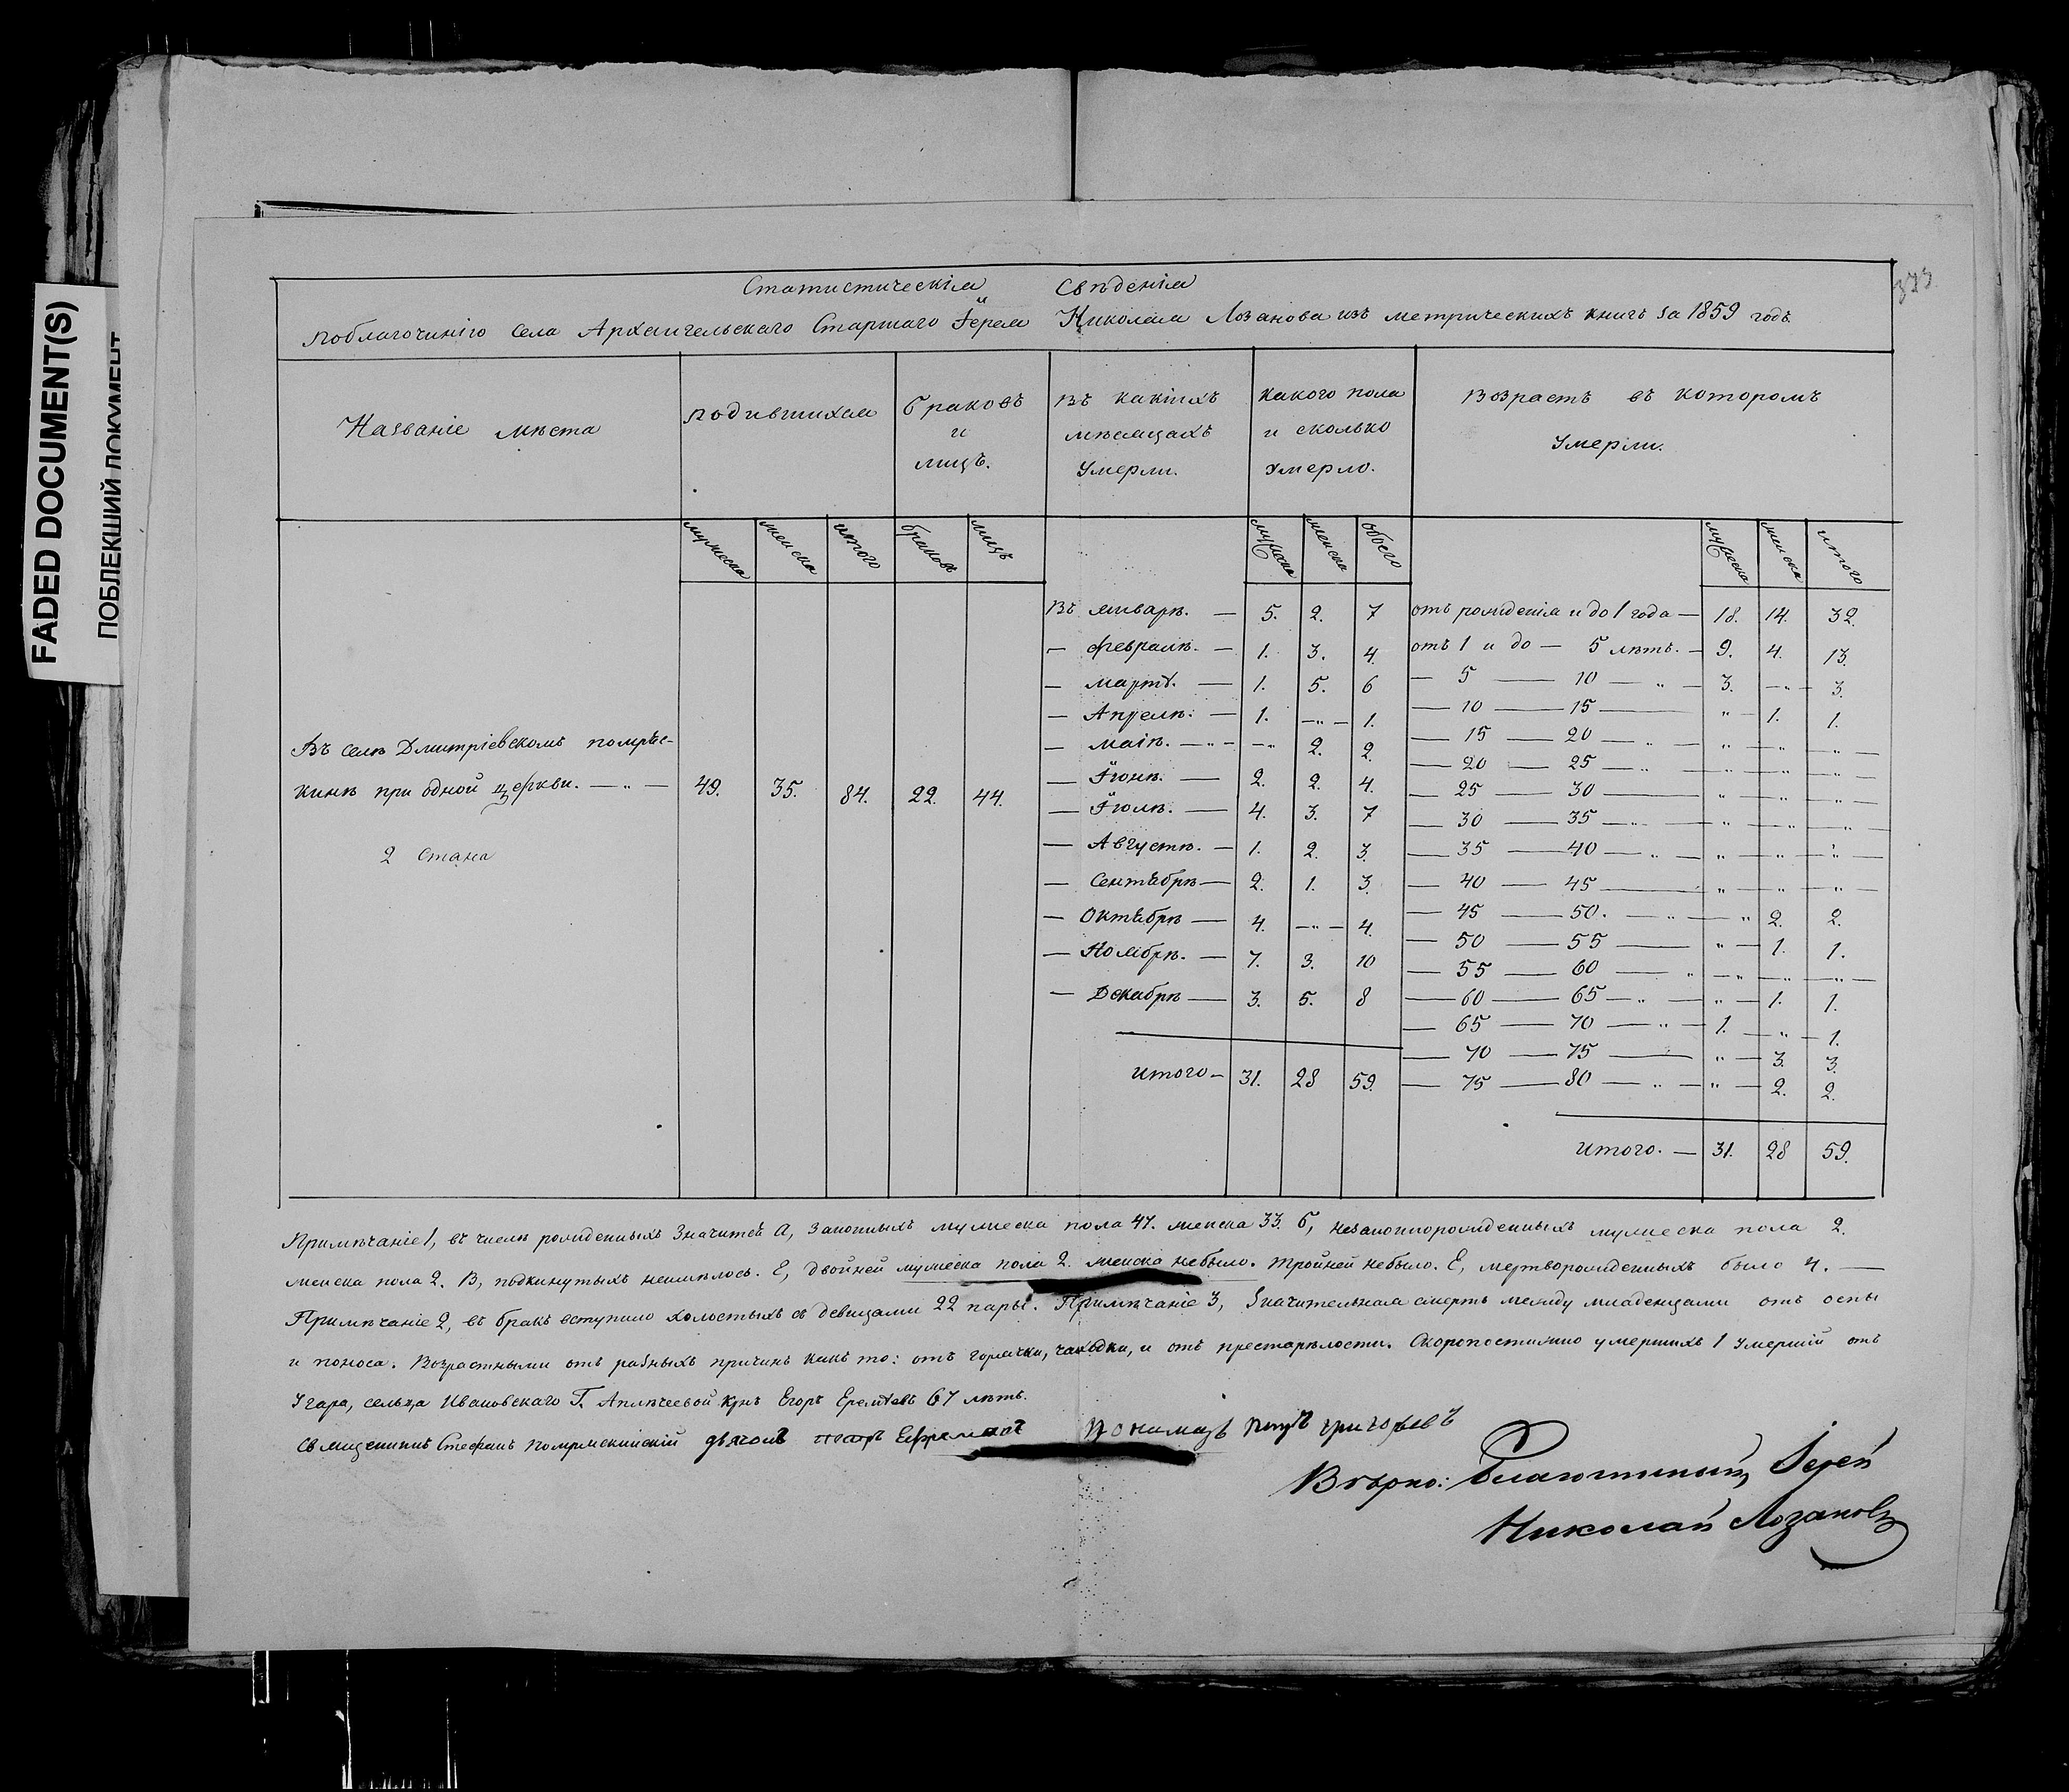 FADED DOCUMENT(S)
ПОБЛЕКШИЙ ДОКУМЕНТ
373
Статистическія Свѣденія
поблагочинію села Архангельскаго Старшаго Іерея Николая Лозанова изъ метрическихъ книгъ за 1859 годъ
Названіе мѣста
родившихся
браковъ и лицъ.
Въ какихъ мѣсяцахъ Умерли.
какого пола и сколько умерло.
Возрастъ въ которомъ Умерли.
мужеска женска итого браковъ лицъ мужеска женска обоего мужеска женска итого
Въ селѣ Дмитріевскомъ помряс-
кинѣ при одной церкви. — „ — 49. 35. 84. 22. 44.
2 Стана
Въ январѣ. — 5. 2. 7
— февралѣ. — 1. 3. 4.
— мартѣ. — 1. 5. 6
— Апрелѣ. — 1. — „ — 1.
— маіѣ. — „ — — „ 2. 2.
— Іюнѣ. — 2. 2. 4.
— Іюлѣ. — 4. 3. 7
— Августѣ. — 1. 2. 3.
— Сентябрѣ — 2. 1. 3.
— Октябрѣ — 4. — „ — 4.
— Ноябрѣ. — 7. 3. 10
— Декабрѣ — 3. 5. 8
итого — 31. 28 59.
отъ рожденія и до 1 года — 18. 14. 32.
отъ 1 и до — 5 лѣтъ. — 9. 4. 13.
— 5 — 10 — „ — 3. — „ — 3.
— 10 — 15 — „ — 1. 1.
— 15 — 20 — „ — „ — „ — „ —
— 20 — 25 — „ — „ — „ — „ —
— 25 — 30 — „ — „ — „ —
— 30 — 35 — „ — „ — „ — „ —
— 35 — 40 — „ — „ — „ — „ —
— 40 — 45 — „ — „ — „ —
— 45 — 50. — „ — „ 2. 2.
— 50 — 55 — „ — 1. 1.
— 55 — 60 — „ — „ — „ — „ —
— 60 — 65 — „ — „ — 1. 1.
— 65 — 70 — „ — 1. — „ — 1.
— 70 — 75 — „ — 3. 3.
— 75 — 80 — „ — „ — 2. 2.
итого. — 31. 28 59.
Примѣчаніе 1, въ числѣ рожденныхъ Значится А, Законныхъ мужеска пола 47. женска 33. Б, незаконнорожденныхъ мужеска пола 2.
женска пола 2. В, подкинутыхъ неимѣлось. Г, двойней мужеска пола 2. женска небыло. тройней небыло. Е, мертворожденныхъ было 4. —
Примѣчаніе 2, въ бракъ вступило холостыхъ съ девицами 22 пары. Примѣчаніе 3, Значительная смерть между младенцами отъ оспы
и поноса. Возрастными отъ разныхъ причинъ какъ то: отъ горячки, чаходки, и отъ престарѣлости. Скоропостижно умершихъ 1 Умершій отъ
Угара, сельца Ивановскаго Г. крнъ Егоръ 67 лѣтъ.
Священникъ Стефанъ дьяконъ Ефремовъ Пономарь Петръ григорьевъ
Вѣрно: Благочинный, Іерей
Николай Лозановъ